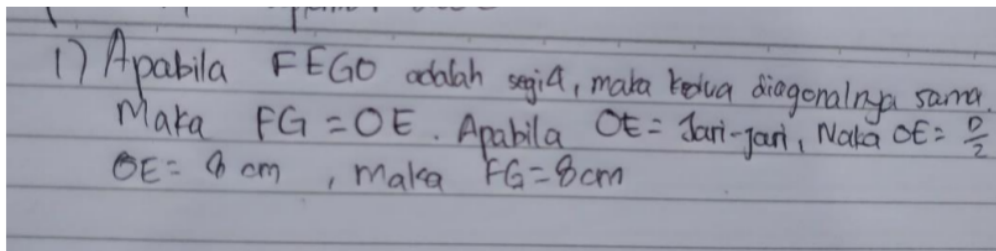 1) Apabila FEGO adalah segi4, maka kedua diagonalnya sama.
Maka FG = OE. Apabila OE = Jari-jari, Maka OE = D/2
OE = 8 cm, maka FG = 8cm